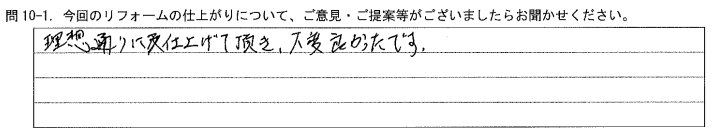 問10-1. 今回のリフォームの仕上がりについて、ご意見・ご提案等がございましたらお聞かせください。
理想通りに仕上げて頂き、大変良かったです。